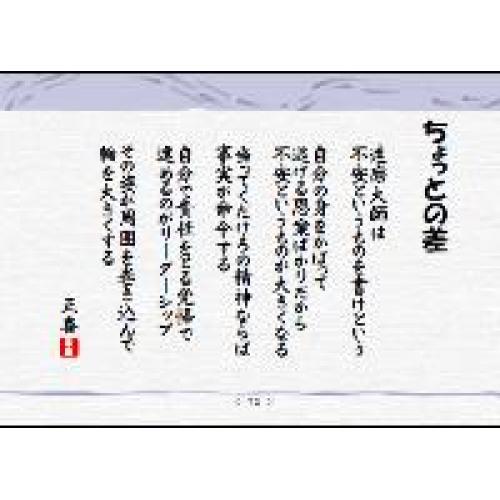 ちょっとの差
達磨大師は
不安というものを書けという
自分の身をかばって
逃げる思案ばかりだから
不安というものが大きくなる
当ってくだけろの精神ならば
事実が命令する
自分で責任をとる覚悟で
進めるのがリーダーシップ
その姿が周囲を巻き込んで
輪を大きくする